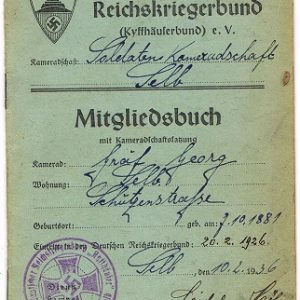 Reichskriegerbund
(Kyffhäuserbund) e. V.
Kameradschaft: Soldaten Kameradschaft
Selb
Mitgliedsbuch
mit Kameradschaftssatzung
Kamerad: Gräf Georg
Wohnung: Selb
Schützenstraße
Geburtsort: geb. am: 3.10.1881
Eintritt in den Deutschen Reichskriegerbund: 20.2.1926.
Selb, den 10.2.1936